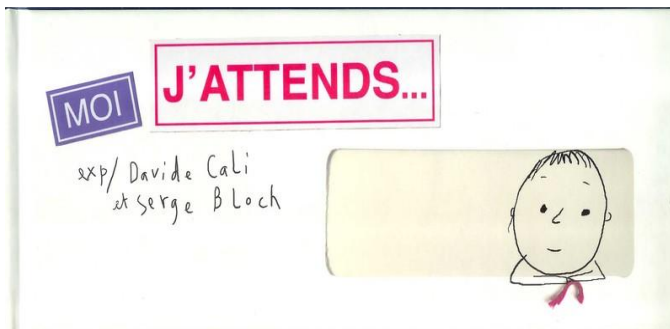 MOI
J'ATTENDS...
exp/ Davide Cali
et Serge Bloch